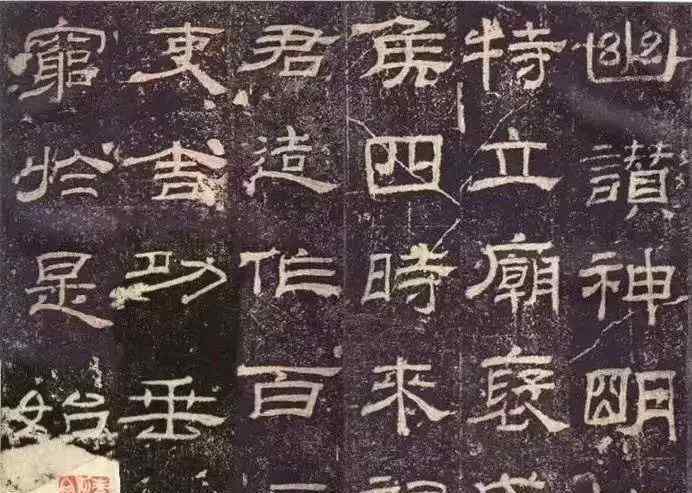 幽讚神明
特立廟褒
侯四時來
君造作百
吏舍功垂
窮於是始